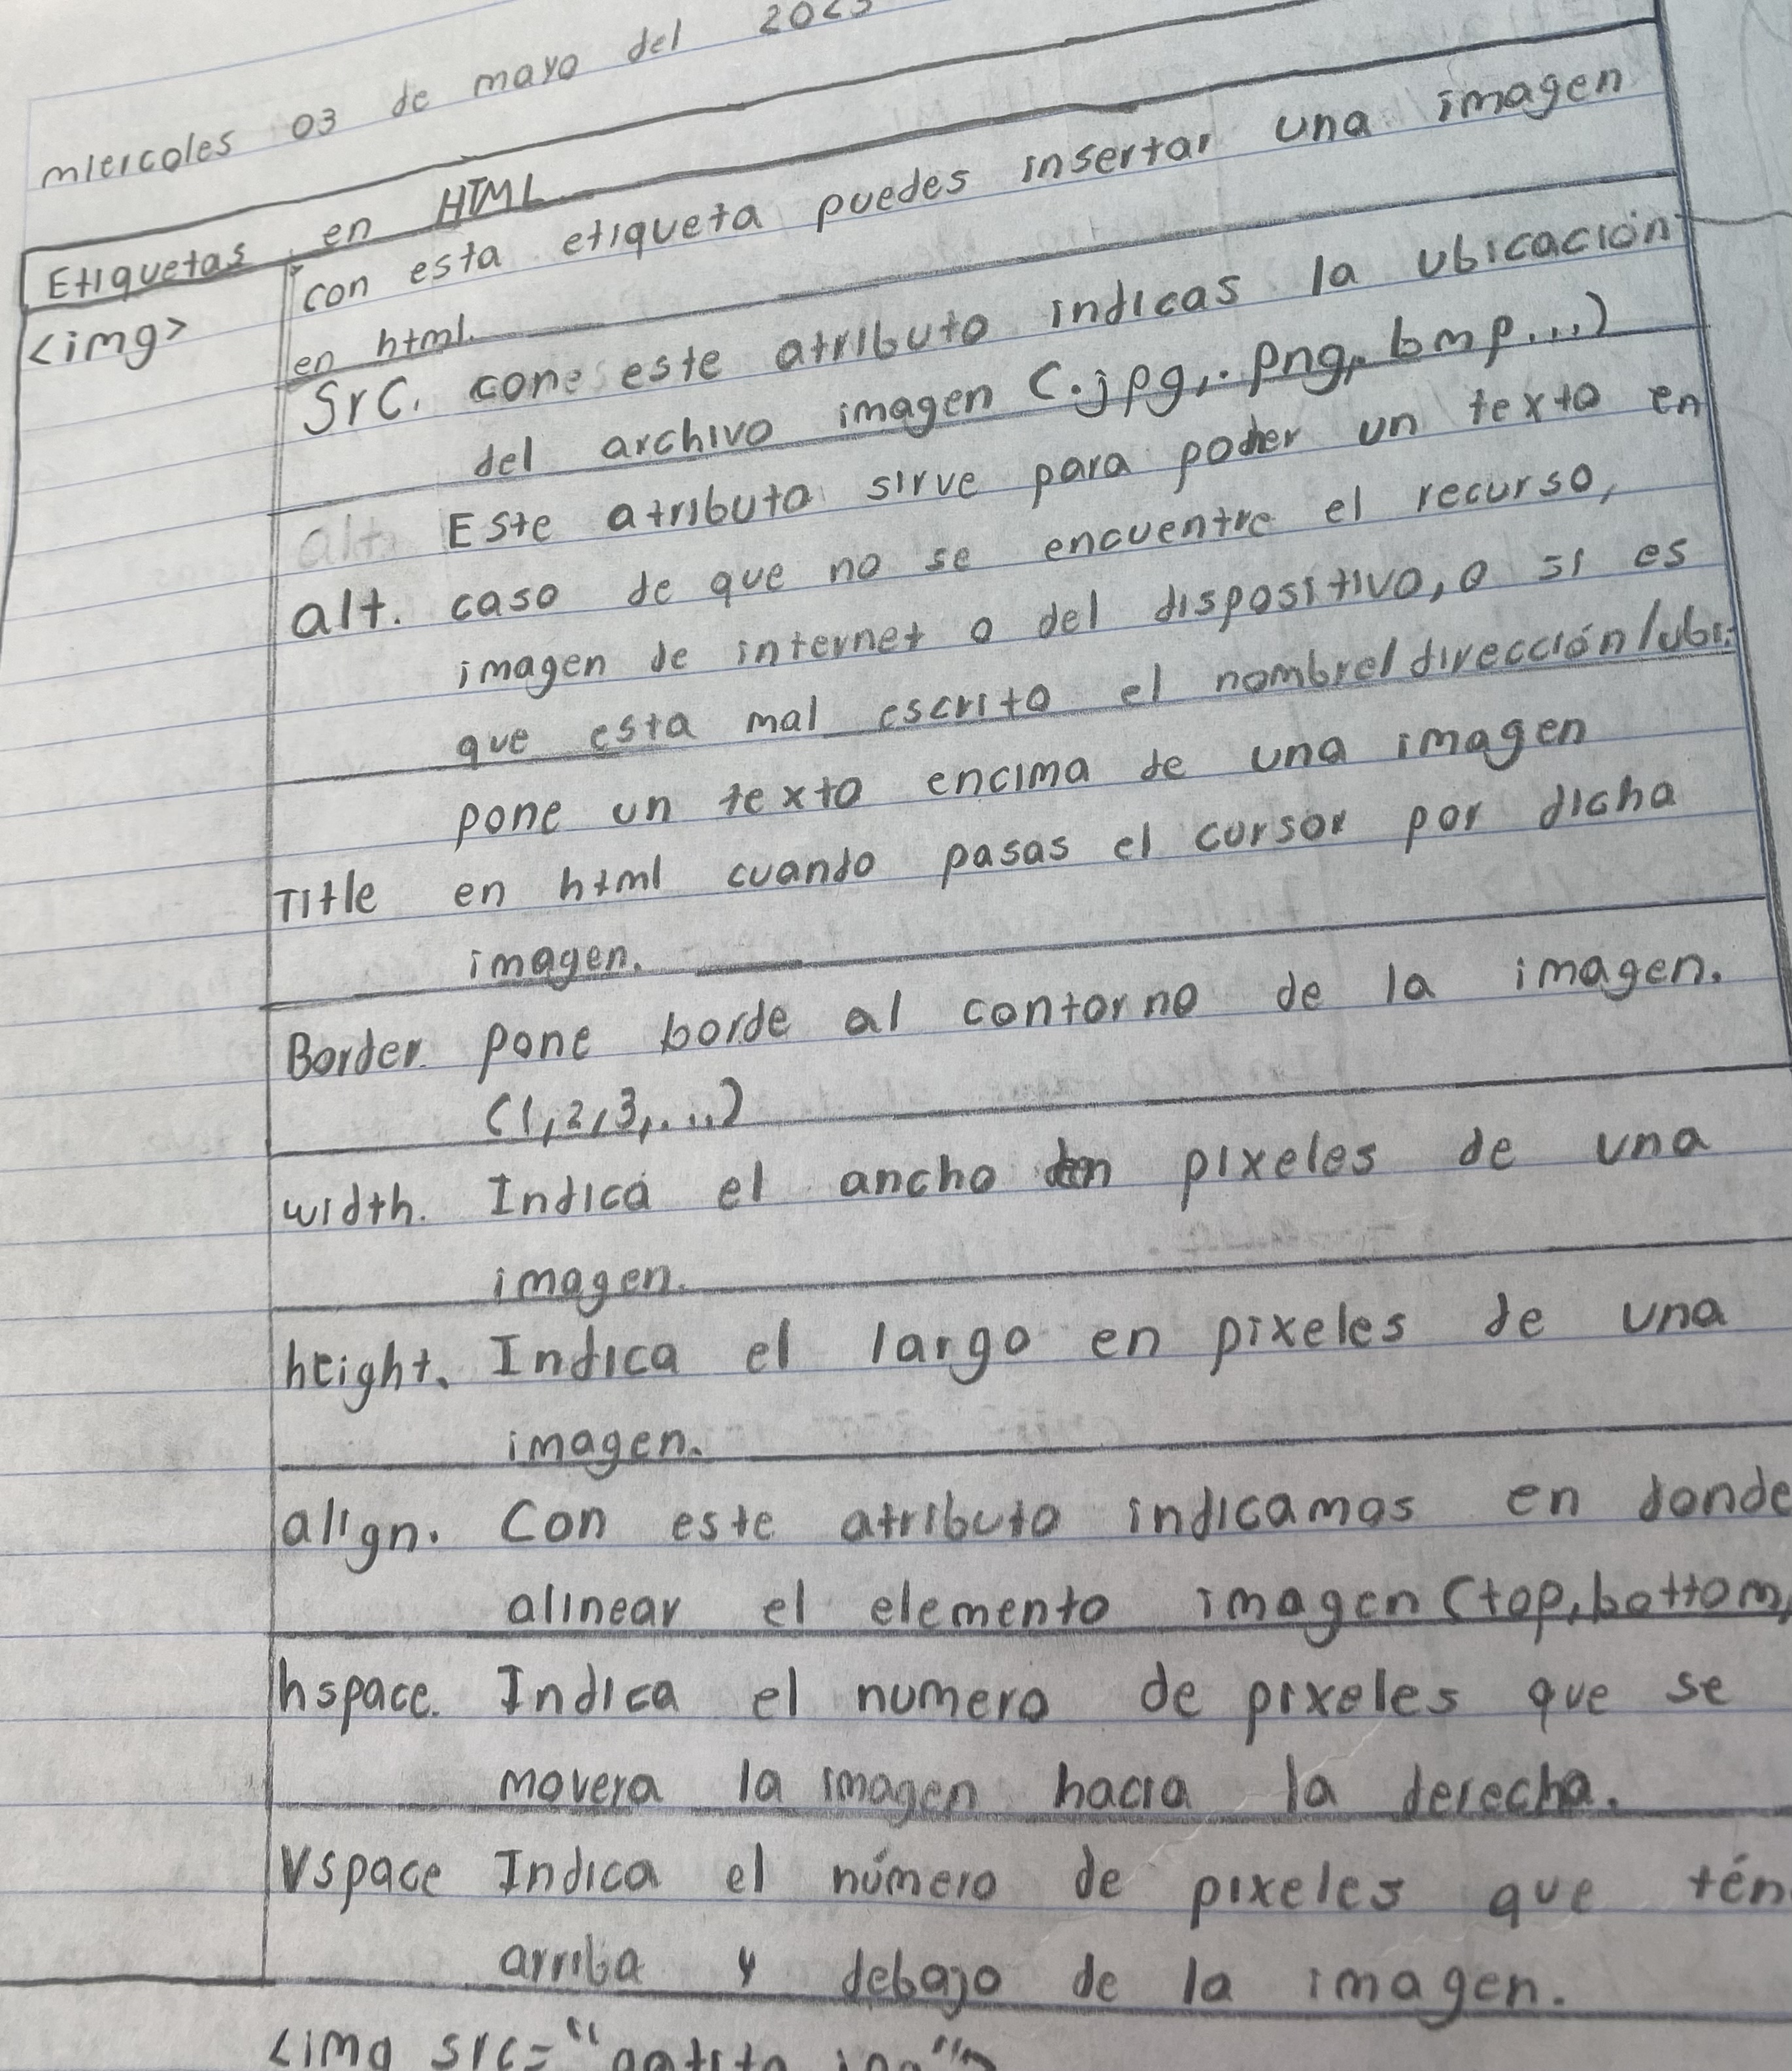 miercoles 03 de mayo del
Etiquetas en HTML
<img>
con esta etiqueta puedes insertar una imagen
en html.
Src. con este atributo indicas la ubicación
del archivo imagen (.jpg,.png,.bmp...)
alt.
Este atributo sirve para poder un texto en
alt. caso de que no se encuentre el recurso,
imagen de internet o del dispositivo, o si es
que esta mal escrito el nombre/dirección/ubi.
pone un texto encima de una imagen
Title en html cuando pasas el cursor por dicha
imagen.
Border. pone borde al contorno de la imagen.
(1,2,3,...)
width. Indica el ancho en pixeles de una
imagen.
height. Indica el largo en pixeles de una
imagen.
align. Con este atributo indicamos en donde
alinear el elemento imagen (top,bottom,
hspace. Indica el numero de pixeles que se
movera la imagen hacia la derecha.
Vspace Indica el número de pixeles que tén
arriba y debajo de la imagen.
<img src="gatito.jpg">